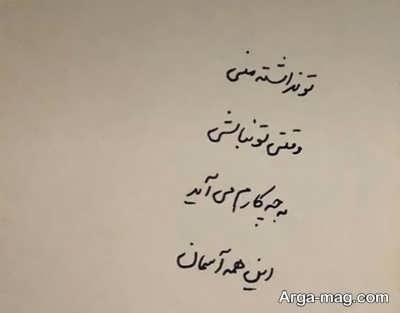 تو نداشته منی
وقتی تو نباشی
به چه کارم می آید
این همه آسمان
Arga-mag.com